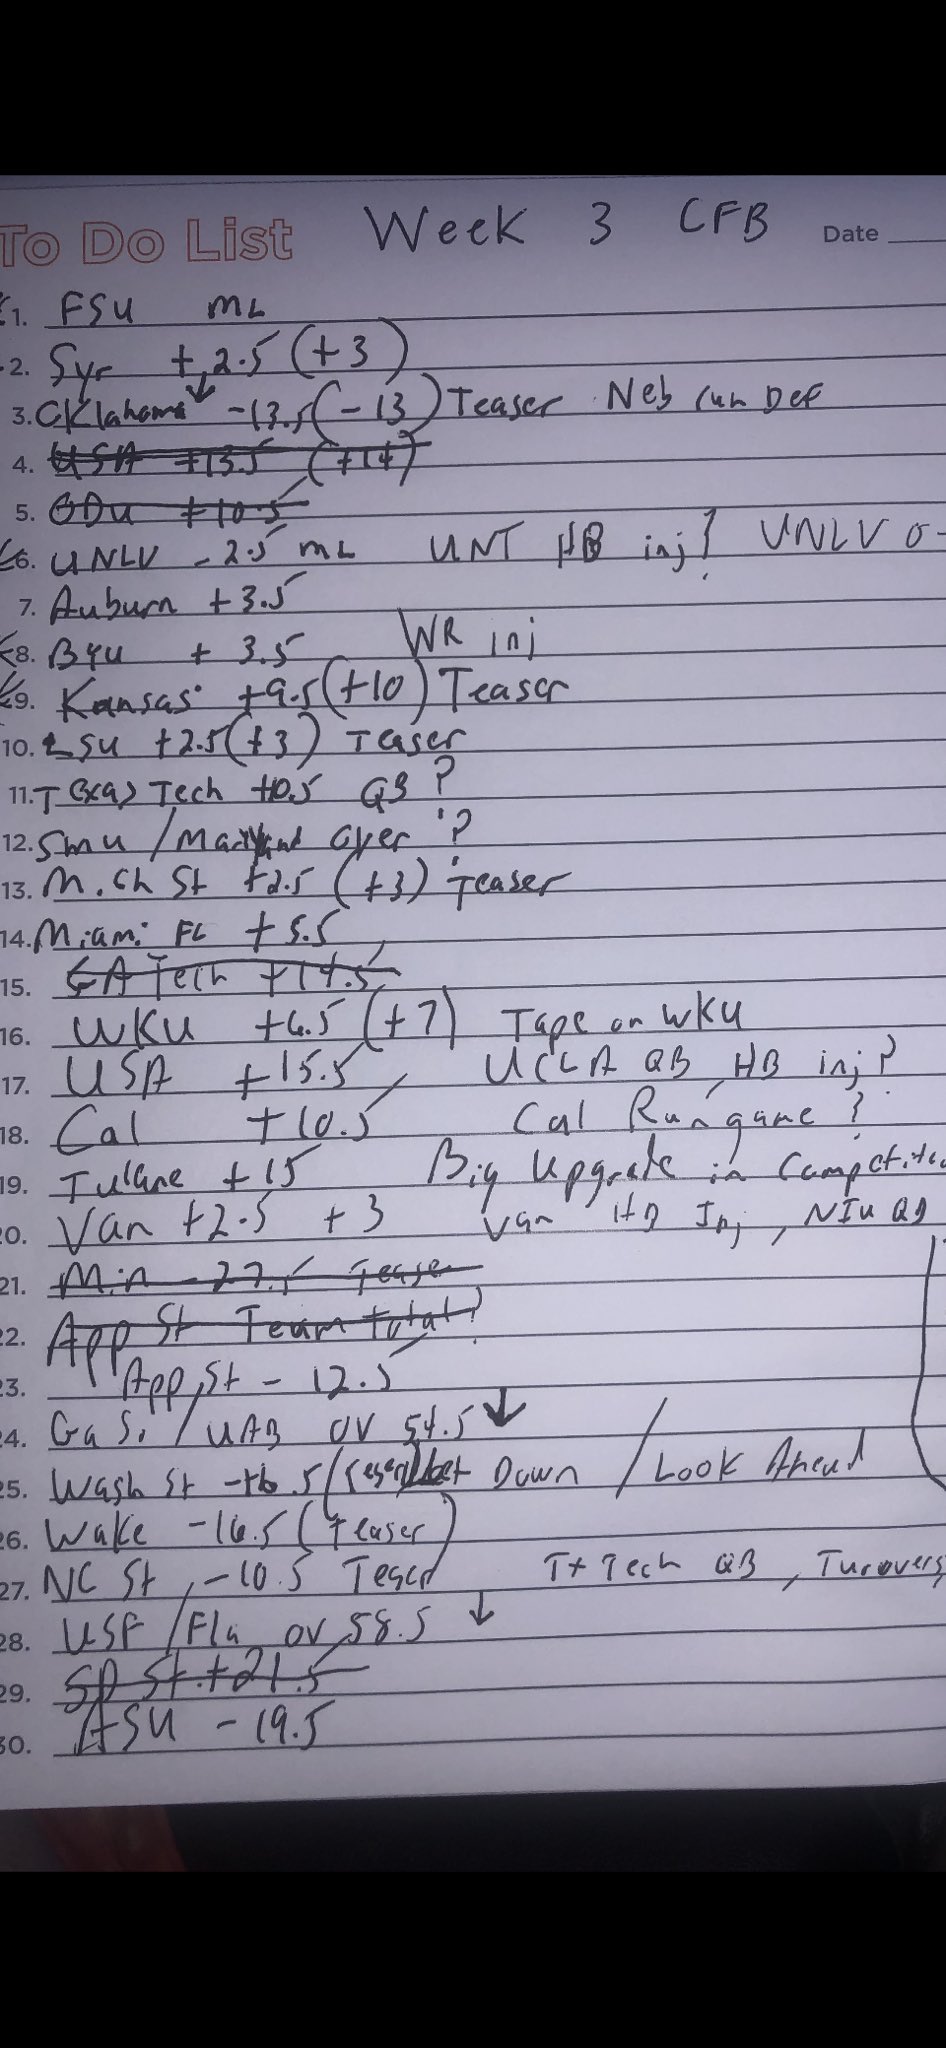 To Do List Week 3 CFB Date
1. FSU ML
2. Syr +2.5 (+3)
3. Oklahoma ↓ -13.5 (-13) Teaser Neb run Def
4. USA +13.5 (+14)
5. ODU +10.5
6. UNLV -2.5 ML UNT HB inj? UNLV O-
7. Auburn +3.5
8. BYU + 3.5 WR inj
9. Kansas +9.5 (+10) Teaser
10. LSU +2.5 (+3) Teaser
11. Texas Tech +10.5 QB ?
12. SMU / Maryland Over ?
13. Mich St +2.5 (+3) Teaser
14. Miami FL +5.5
15. GA Tech +14.5
16. WKU +6.5 (+7) Tape on WKU
17. USA +15.5 UCLA QB, HB inj?
18. Cal +10.5 Cal Run game ?
19. Tulane +15 Big Upgrade in Competition
20. Van +2.5 +3 Van HB Inj, NIU QB
21. Min -27.5 Teaser
22. App St Team total?
23. App St - 12.5
24. Ga S. / UAB OV 54.5 ↓
25. Wash St Down / Look Ahead
26. Wake -16.5 (Teaser)
27. NC St -10.5 Teaser Tx Tech QB, Turovers,
28. USF / Fla OV 58.5 ↓
29. SD St. +21.5
30. ASU -19.5